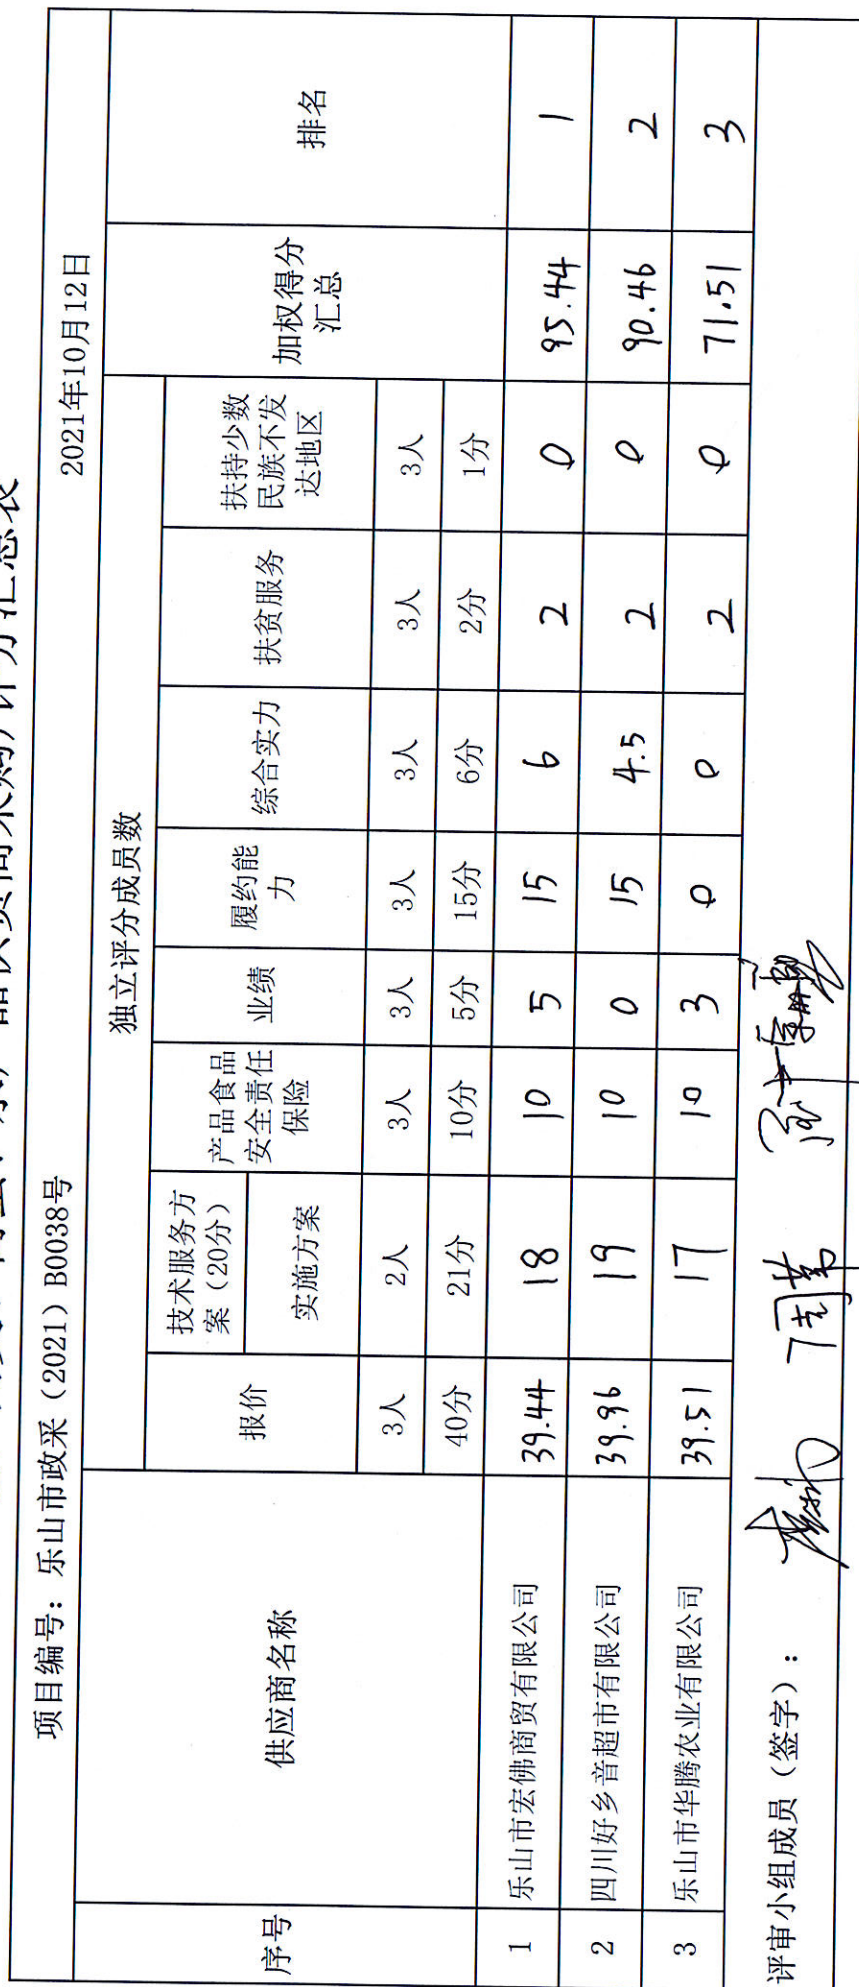 评分汇总表
项目编号：乐山市政采（2021）B0038号 2021年10月12日
序号 供应商名称 独立评分成员数 加权得分汇总 排名
报价 技术服务方案（20分） 产品食品安全责任保险 业绩 履约能力 综合实力 扶贫服务 扶持少数民族不发达地区
实施方案
3人 2人 3人 3人 3人 3人 3人 3人
40分 21分 10分 5分 15分 6分 2分 1分
1 乐山市宏佛商贸有限公司 39.44 18 10 5 15 6 2 0 95.44 1
2 四川好乡音超市有限公司 39.96 19 10 0 15 4.5 2 0 90.46 2
3 乐山市华腾农业有限公司 39.51 17 10 3 0 0 2 0 71.51 3
评审小组成员（签字）：